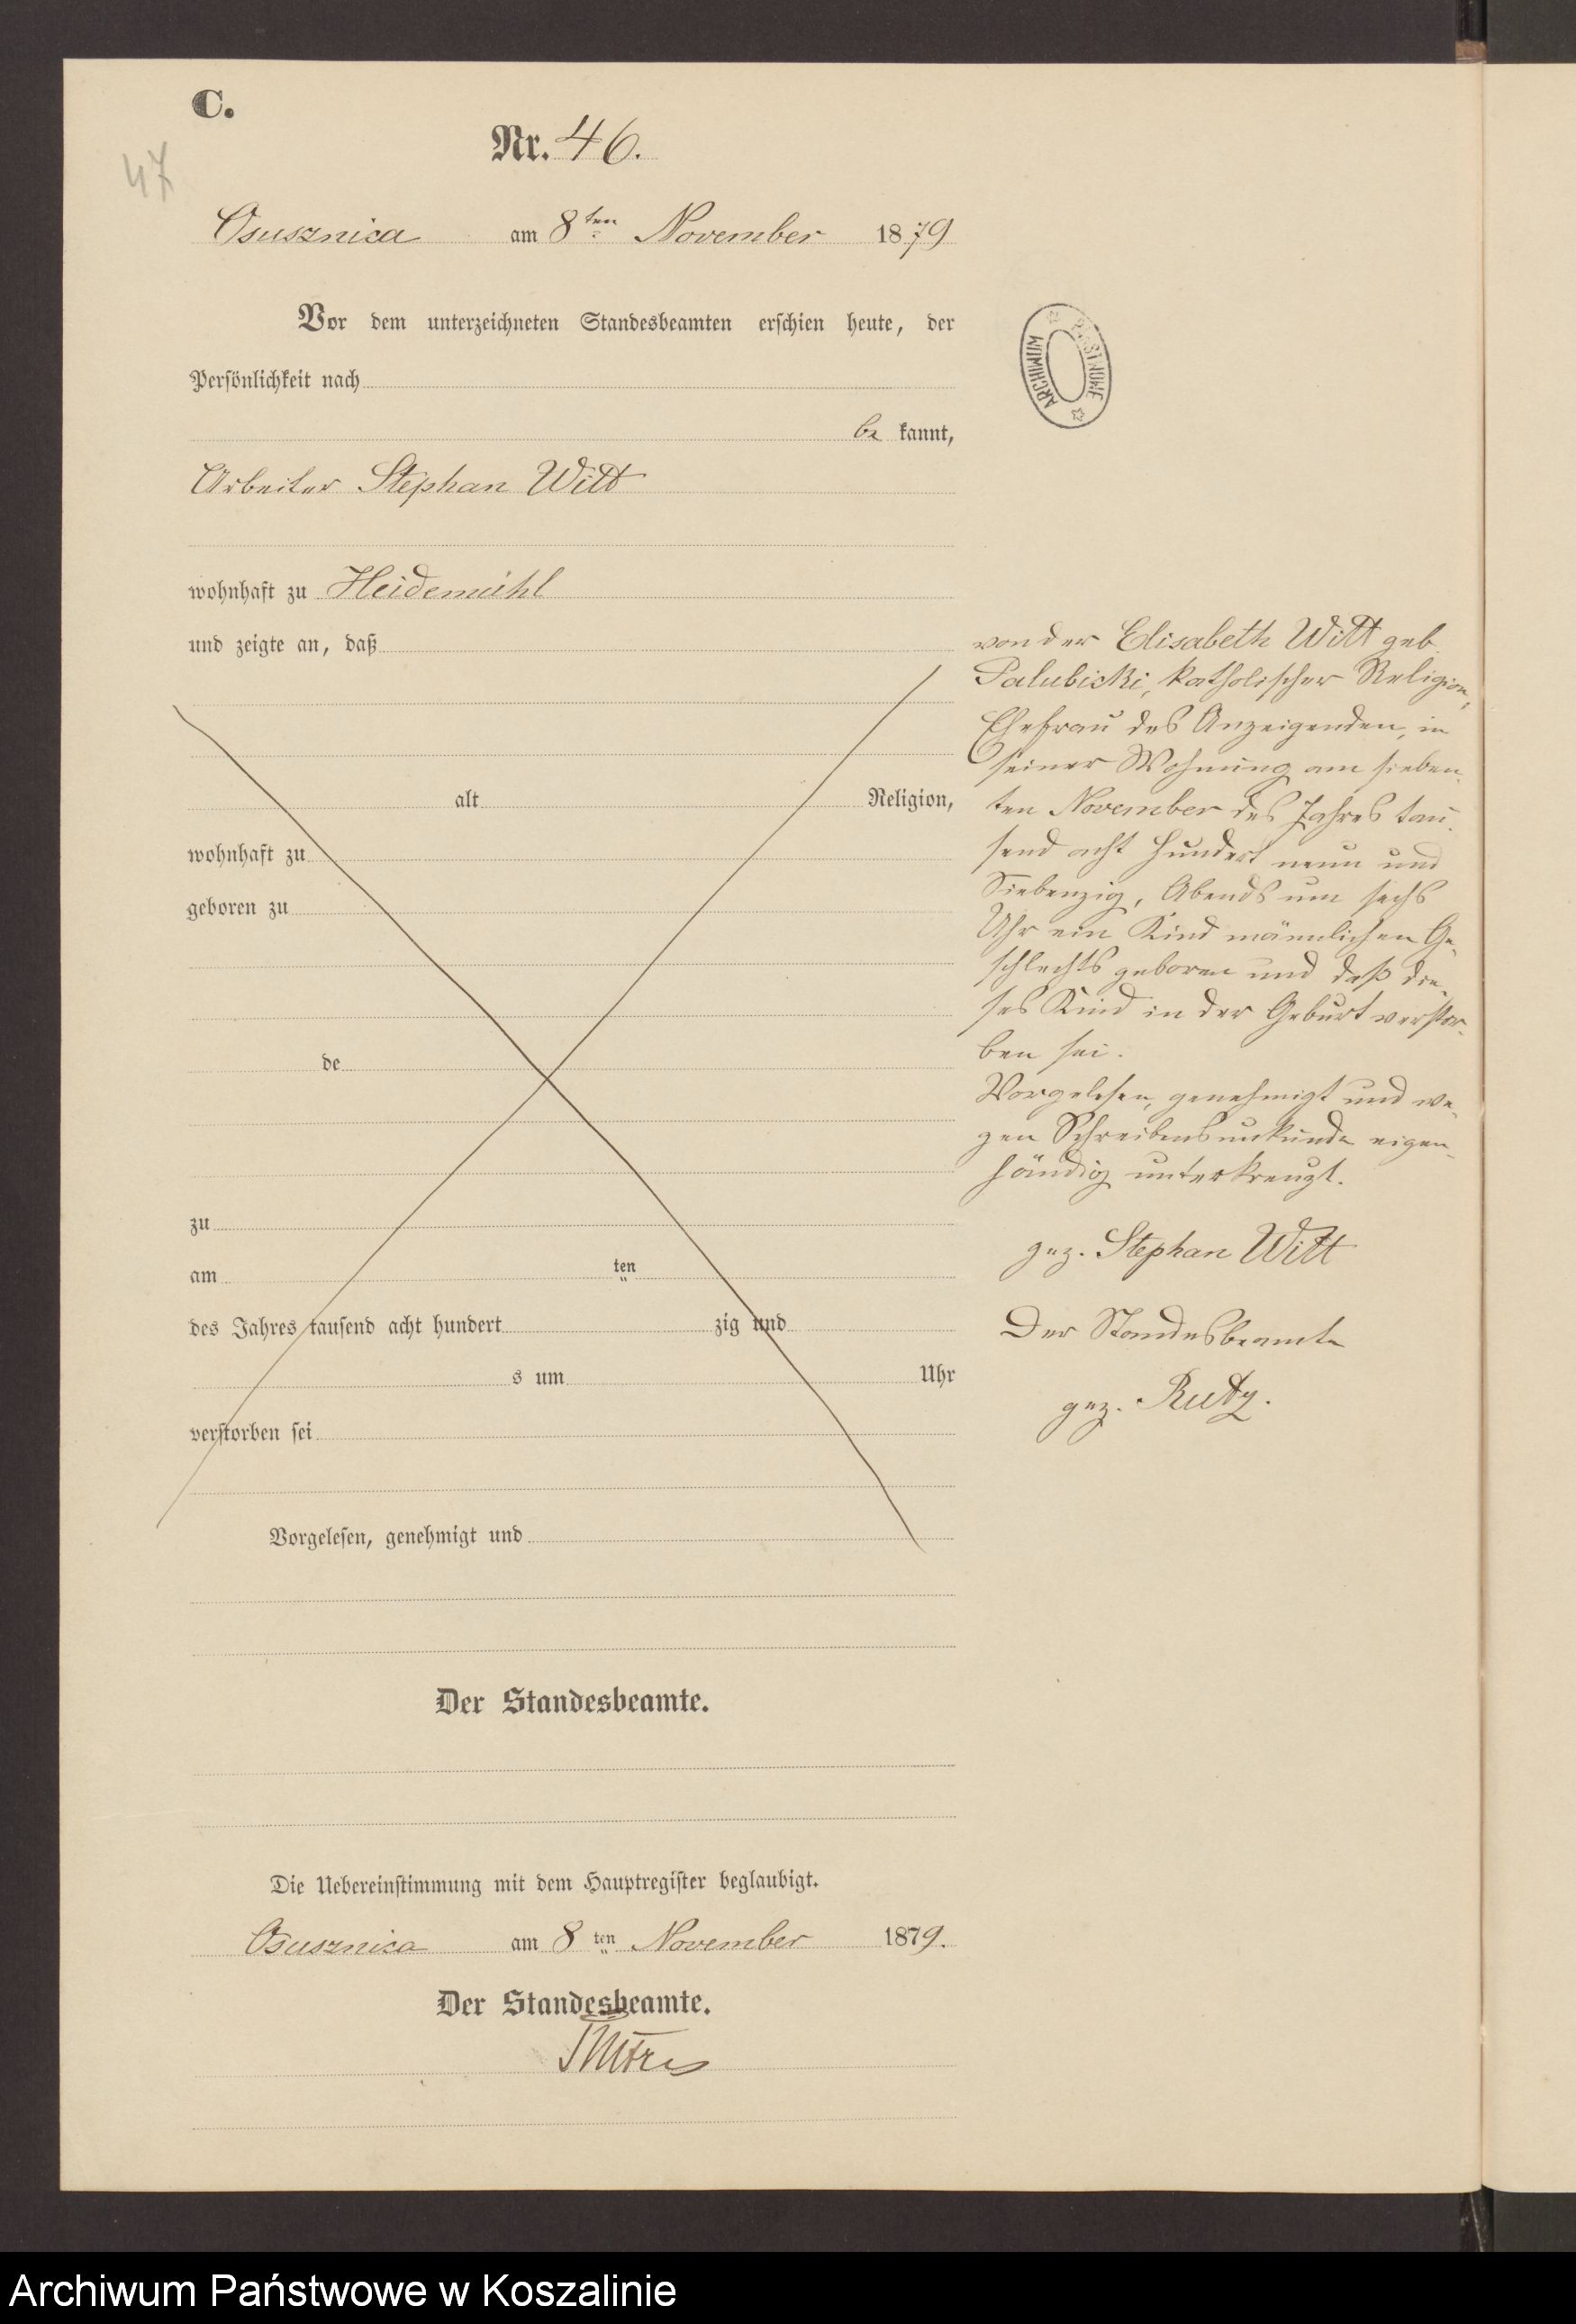 C.
Nr. 46.
47
Osusznica am 8ten November 1879
Vor dem unterzeichneten Standesbeamten erschien heute, der
Persönlichkeit nach
be kannt,
Arbeiter Stephan Witt
wohnhaft zu Heidemühl
und zeigte an, daß
alt Religion,
wohnhaft zu
geboren zu
de
zu
am ten
des Jahres tausend acht hundert zig und
s um Uhr
verstorben sei
Vorgelesen, genehmigt und
Der Standesbeamte.
Die Uebereinstimmung mit dem Hauptregister beglaubigt.
Osusznica am 8ten November 1879.
Der Standesbeamte.
ARCHIWUM PAŃSTWOWE
von der Elisabeth Witt geb.
Palubicki, katholischer Religion,
Ehefrau des Anzeigenden, in
seiner Wohnung am sieben-
ten November des Jahres tau-
send acht hundert neun und
Siebenzig, Abends um sechs
Uhr ein Kind männlichen Ge-
schlechts geboren und daß die-
ses Kind in der Geburt verstor-
ben sei.
Vorgelesen, genehmigt und we-
gen Schreibensunkunde eigen-
händig unterkreuzt.
gez. Stephan Witt
Der Standesbeamte
gez. Rutz.
Archiwum Państwowe w Koszalinie